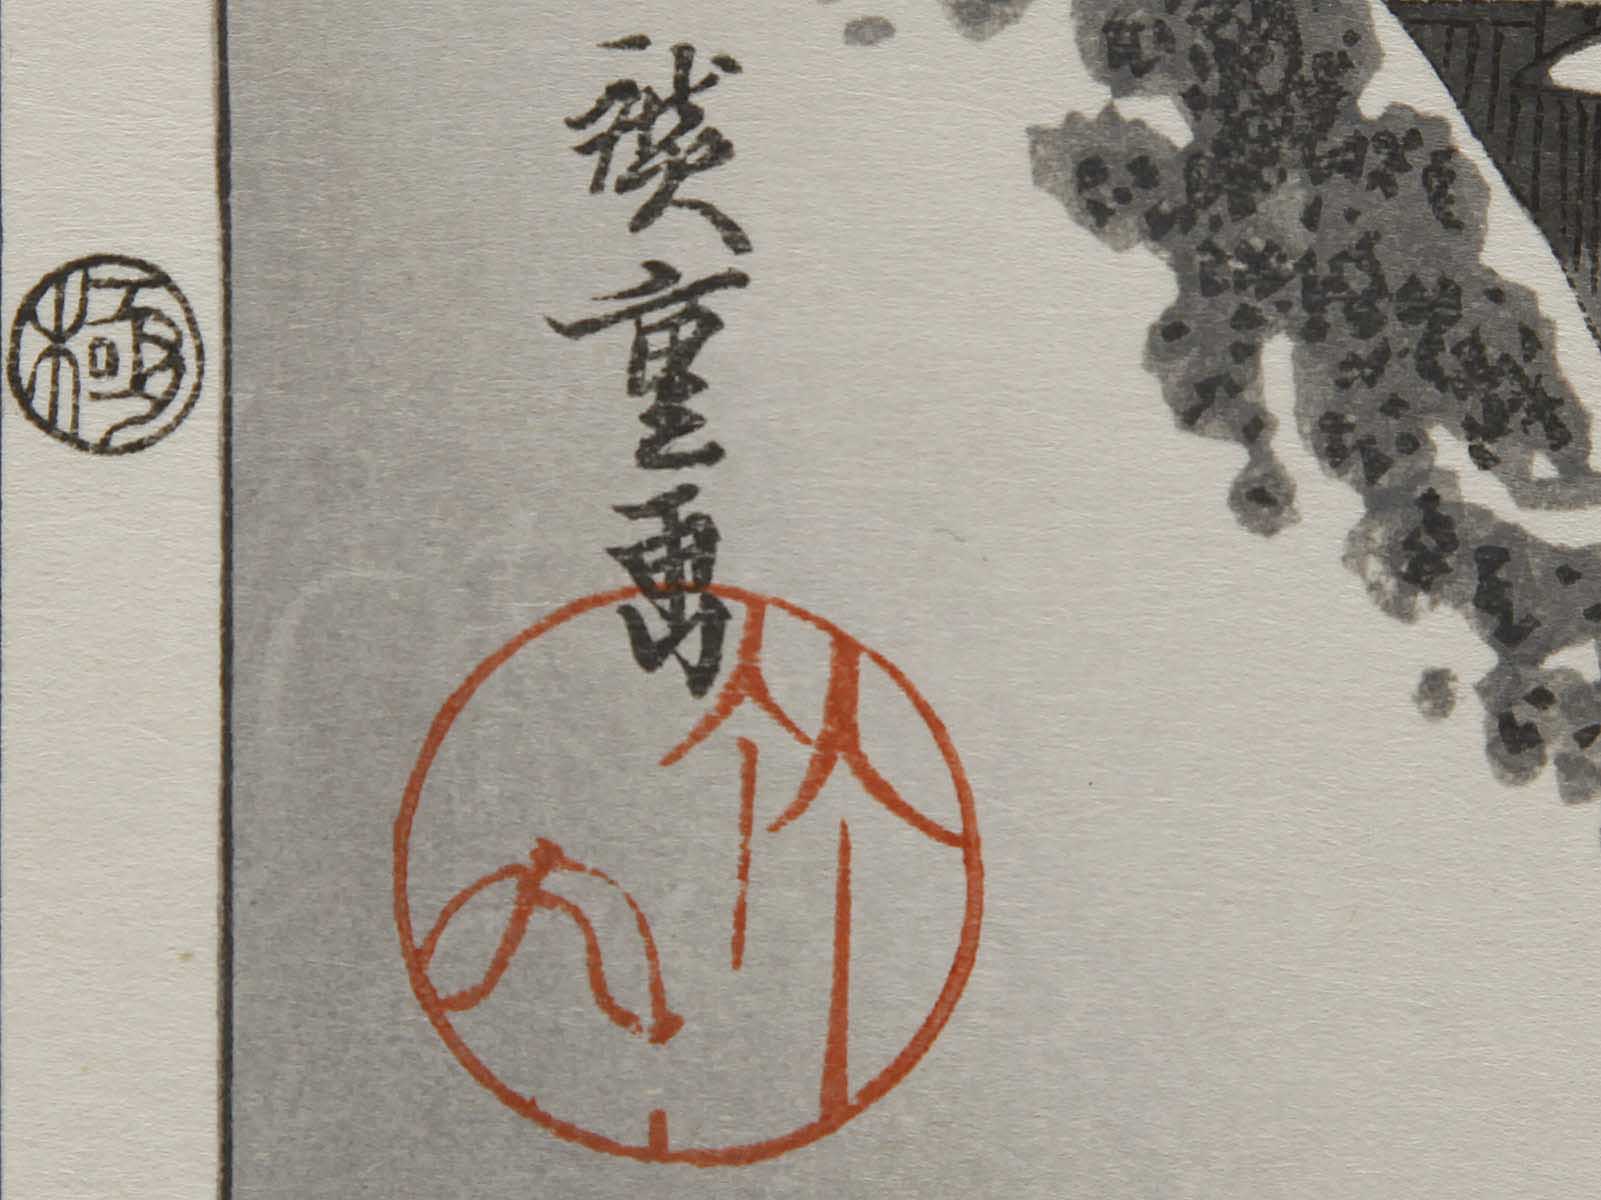 廣重画
竹内
極